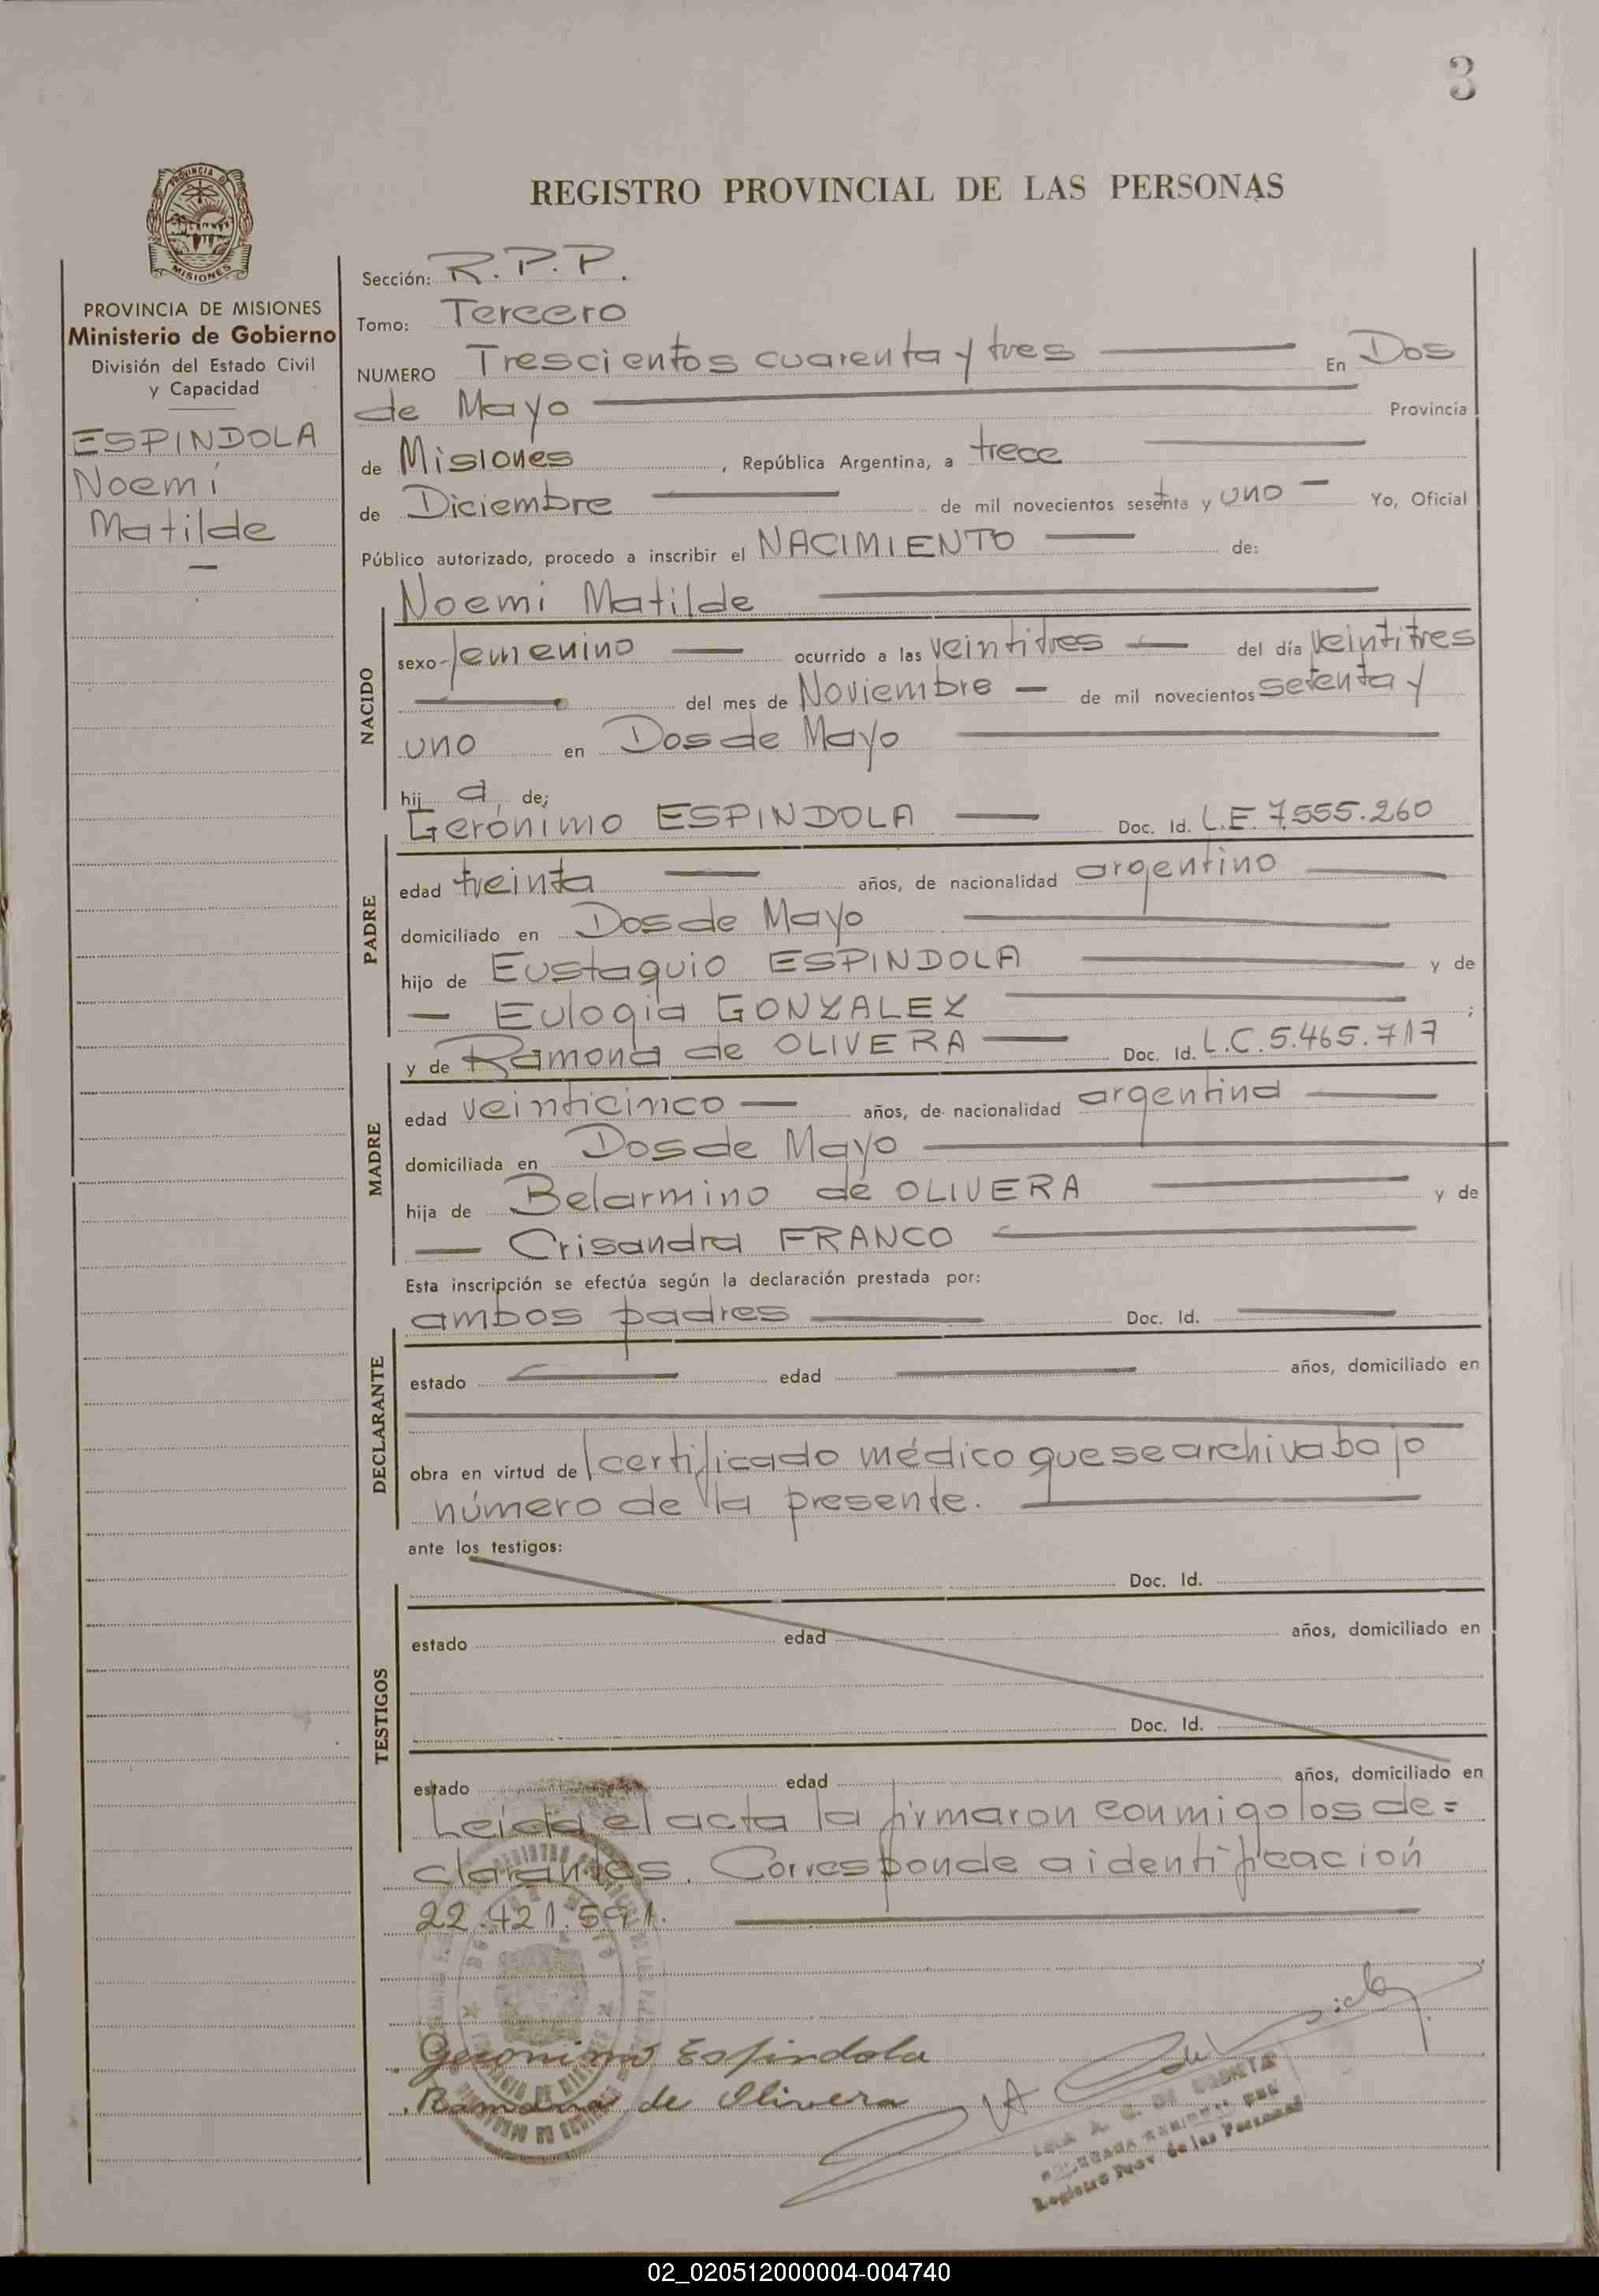 3
REGISTRO PROVINCIAL DE LAS PERSONAS
PROVINCIA DE MISIONES
Ministerio de Gobierno
División del Estado Civil
y Capacidad
ESPINDOLA
Noemí
Matilde
Sección: R.P.P.
Tomo: Tercero
NUMERO Trescientos cuarenta y tres En Dos
de Mayo Provincia
de Misiones, República Argentina, a trece
de Diciembre de mil novecientos sesenta y uno Yo, Oficial
Público autorizado, procedo a inscribir el NACIMIENTO de:
Noemi Matilde
NACIDO
sexo femenino ocurrido a las veintitres del día veintitres
del mes de Noviembre de mil novecientos setenta y
uno en Dos de Mayo
hij a de;
Gerónimo ESPINDOLA Doc. Id. L.E. 7.555.260
PADRE
edad treinta años, de nacionalidad argentino
domiciliado en Dos de Mayo
hijo de Eustaquio ESPINDOLA y de
Eulogia GONZALEZ ;
y de Ramona de OLIVERA Doc. Id. L.C. 5.465.717
MADRE
edad veinticinco años, de nacionalidad argentina
domiciliada en Dos de Mayo
hija de Belarmino de OLIVERA y de
Crisandra FRANCO
Esta inscripción se efectúa según la declaración prestada por:
ambos padres Doc. Id.
DECLARANTE
estado edad años, domiciliado en
obra en virtud de certificado médico que se archiva bajo
número de la presente.
ante los testigos:
Doc. Id.
TESTIGOS
estado edad años, domiciliado en
Doc. Id.
estado edad años, domiciliado en
Leída el acta la firmaron conmigo los de=
clarantes. Corresponde a identificación
22.421.591.
Geronimo Espindola
Ramona de Olivera
Registro Prov. de las Personas
02_020512000004-004740